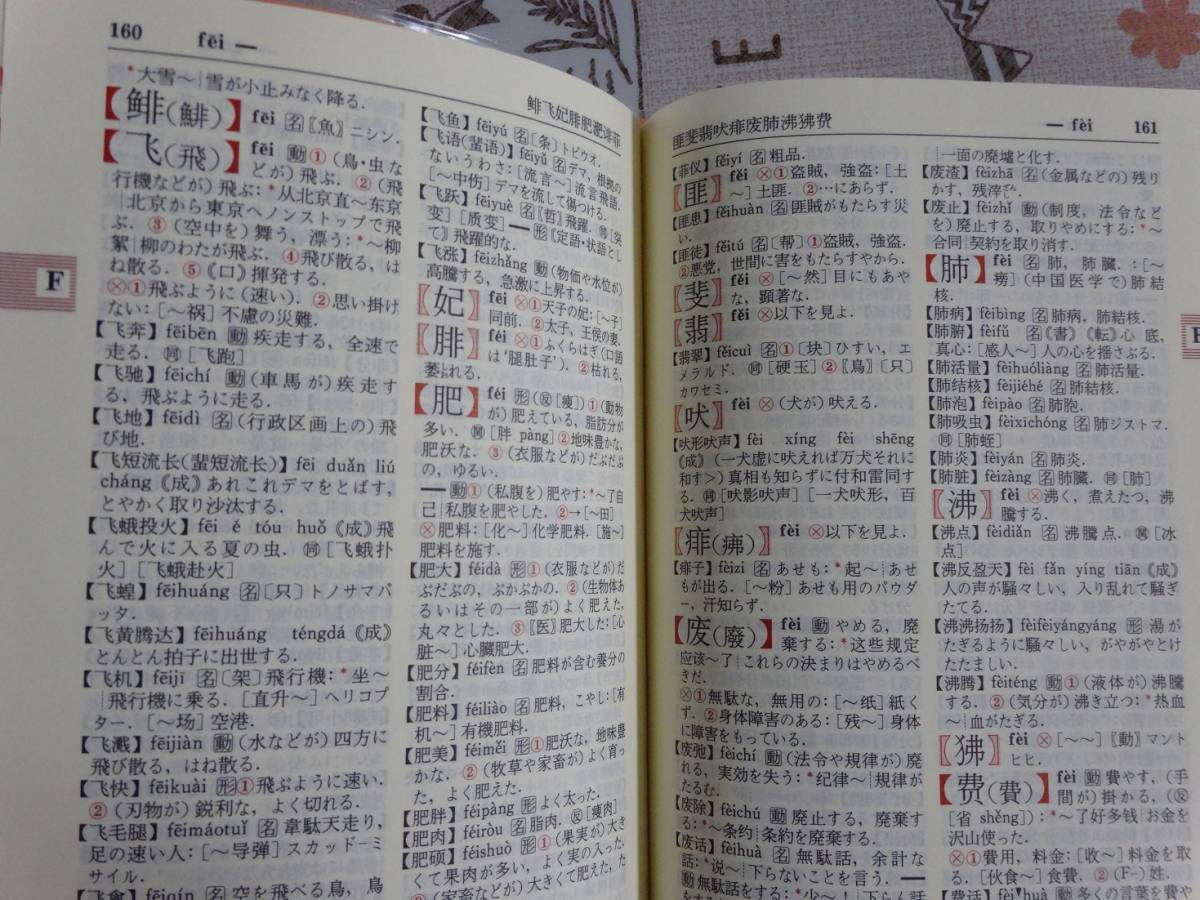 160 fēi —
*大雪～｜雪が小止みなく降る.
【鲱(鯡)】 fēi 名〖魚〗ニシン.
【飞(飛)】 fēi 動①(鳥・虫な
どが)飛ぶ. ②(飛
行機などが)飛ぶ:*从北京直～东京
｜北京から東京へノンストップで飛
ぶ. ③(空中を)舞う, 漂う:*～柳
絮｜柳のわたが飛ぶ. ④飛び散る, は
ね散る. ⑤《口》揮発する.
⊗①飛ぶように(速い). ②思い掛け
ない:[～祸]不慮の災難.
【飞奔】fēibēn 動 疾走する, 全速で
走る. 同[飞跑]
【飞驰】fēichí 動(車馬が)疾走す
る, 飛ぶように走る.
【飞地】fēidì 名(行政区画上の)飛
び地.
【飞短流长(蜚短流长)】fēi duǎn liú
cháng《成》あれこれデマをとばす,
とやかく取り沙汰する.
【飞蛾投火】fēi é tóu huǒ《成》飛
んで火に入る夏の虫. 同[飞蛾扑
火][飞蛾赴火]
【飞蝗】fēihuáng 名[只]トノサマバ
ッタ.
【飞黄腾达】fēihuáng téngdá《成》
とんとん拍子に出世する.
【飞机】fēijī 名[架]飛行機:*坐～
｜飛行機に乗る. [直升～]ヘリコプ
ター. [～场]空港.
【飞溅】fēijiàn 動(水などが)四方に
飛び散る, はね散る.
【飞快】fēikuài 形①飛ぶように速い.
②(刃物が)鋭利な, よく切れる.
【飞毛腿】fēimáotuǐ 名 韋駄天走り,
足の速い人:[～导弹]スカッド−ミ
サイル.
【飞禽】fēiqín 名 空を飛べる鳥, 鳥
鲱飞妃腓肥淝蜚菲
【飞鱼】fēiyú 名[条]トビウオ.
【飞语(蜚语)】fēiyǔ 名 デマ, 根拠の
ないうわさ:[流言～]流言飛語.
[～中伤]デマを流して傷つける.
【飞跃】fēiyuè 名〖哲〗飛躍. 同[突
变][质变] — 形《定語・状語とし
て》飛躍的な.
【飞涨】fēizhǎng 動(物価や水位が)
高騰する, 急激に上昇する.
【妃】 fēi ⊗①天子の妃:[～子]
同前. ②太子, 王侯の妻.
【腓】 féi ⊗①ふくらはぎ(口語
は‘腿肚子’). ②枯れる,
萎れる.
【肥】 féi 形(反[瘦])①(動物
が)肥えている, 脂肪分が
多い. 同[胖 pàng] ②地味豊かな,
肥沃な. ③(衣服などが)だぶだぶ
の, ゆるい.
— 動①(私腹を)肥やす:*～了自
己｜私腹を肥やした. ②→[～田]
⊗肥料:[化～]化学肥料. [施～]
肥料を施す.
【肥大】féidà 形①(衣服などが)だ
ぶだぶの, ぶかぶかの. ②(生物体あ
るいはその一部が)よく肥えた,
丸々とした. ③〖医〗肥大した:[心
脏～]心臓肥大.
【肥分】féifèn 名 肥料が含む養分の
割合.
【肥料】féiliào 名 肥料, こやし:[有
机～]有機肥料.
【肥美】féiměi 形①肥沃な, 地味豊
かな. ②(牧草や家畜が)よく育っ
た, よく肥えた.
【肥胖】féipàng 形 よく太った.
【肥肉】féiròu 名 脂肉. 反[瘦肉]
【肥硕】féishuò 形①(果実が)大き
くて果肉が多い, よく実の入った.
②(家畜などが)大きくて肥えた, た
匪斐翡吠痱废肺沸狒费 — fèi 161
【菲仪】fěiyí 名 粗品.
【匪】 fěi ⊗①盗賊, 強盗:[土
～]土匪. ②…にあらず.
【匪患】fěihuàn 名 匪賊がもたらす災
い.
【匪徒】fěitú 名[帮]①盗賊, 強盗.
②悪党, 世間に害をもたらすやから.
【斐】 fěi ⊗[～然]目にもあや
な, 顕著な.
【翡】 fěi ⊗以下を見よ.
【翡翠】fěicuì 名①[块]ひすい, エ
メラルド. 同[硬玉] ②〖鳥〗[只]
カワセミ.
【吠】 fèi ⊗(犬が)吠える.
【吠形吠声】fèi xíng fèi shēng
《成》(一犬虚に吠えれば万犬それに
和す>)真相も知らずに付和雷同す
る. 同[吠影吠声][一犬吠形, 百
犬吠声]
【痱(疿)】 fèi ⊗以下を見よ.
【痱子】fèizi 名 あせも:*起～｜あせ
もが出る. [～粉]あせも用のパウダ
ー, 汗知らず.
【废(廢)】 fèi 動 やめる, 廃
棄する:*这些规定
应该～了｜これらの決まりはやめるべ
きだ.
⊗①無駄な, 無用の:[～纸]紙く
ず. ②身体障害のある:[残～]身体
に障害をもっている.
【废弛】fèichí 動(法令や規律が)廃
れる, 実効を失う:*纪律～｜規律が
たるむ.
【废除】fèichú 動 廃止する, 廃棄す
る:*～条约｜条約を廃棄する.
【废话】fèihuà 名 無駄話, 余計な
話:*说～｜下らないことを言う. —
動 無駄話をする:*少～！｜下らん話
｜一面の廃墟と化す.
【废渣】fèizhā 名(金属などの)残り
かす, 残滓.
【废止】fèizhǐ 動(制度, 法令など
を)廃止する, 取りやめにする:*～
合同｜契約を取り消す.
【肺】 fèi 名 肺, 肺臓.:[～
痨](中国医学で)肺結
核.
【肺病】fèibìng 名 肺病, 肺結核.
【肺腑】fèifǔ 名《書》《転》心底,
真心:[感人～]人の心を揺さぶる.
【肺活量】fèihuóliàng 名 肺活量.
【肺结核】fèijiéhé 名 肺結核.
【肺泡】fèipào 名 肺胞.
【肺吸虫】fèixīchóng 名 肺ジストマ.
同[肺蛭]
【肺炎】fèiyán 名 肺炎.
【肺脏】fèizàng 名 肺臓. 同[肺]
【沸】 fèi ⊗沸く, 煮えたつ, 沸
騰する.
【沸点】fèidiǎn 名 沸騰点. 反[冰
点]
【沸反盈天】fèi fǎn yíng tiān《成》
人の声が騒々しい, 入り乱れて騒ぎ
たてる.
【沸沸扬扬】fèifèiyángyáng 形 湯が
たぎるように騒々しい, がやがやとけ
たたましい.
【沸腾】fèiténg 動①(液体が)沸騰
する. ②(気分が)沸き立つ:*热血
～｜血がたぎる.
【狒】 fèi ⊗[～～]〖動〗マント
ヒヒ.
【费(費)】 fèi 動 費やす, (手
間が)掛かる, (反
[省 shěng]):*～了好多钱｜お金を
沢山使った.
⊗①費用, 料金:[收～]料金を取
る. [伙食～]食費. ②(F-)姓.
【费话】fèi'huà 動 多くの言葉を費や
F